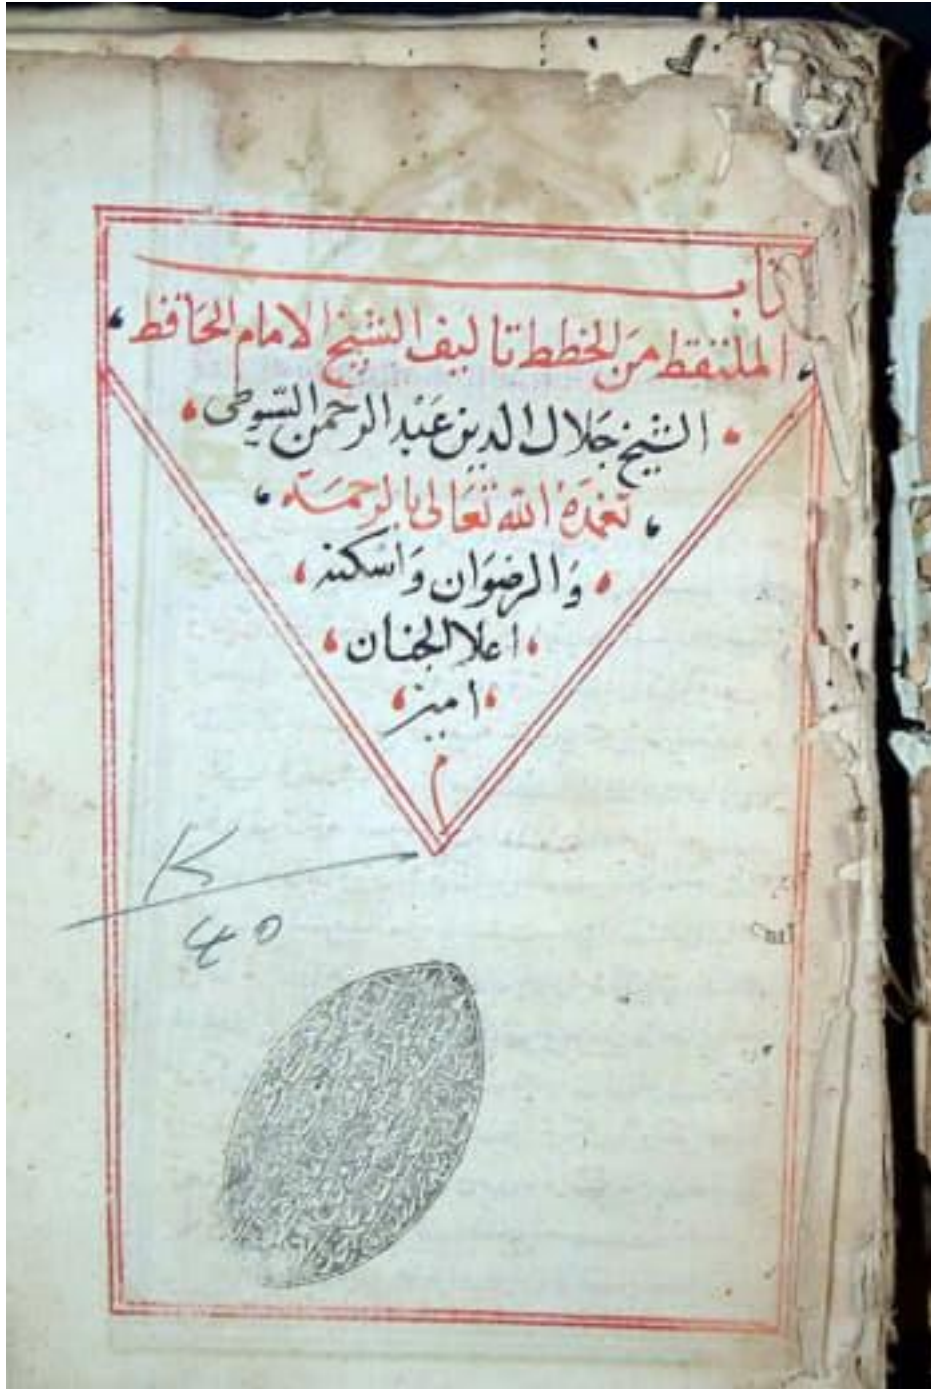 كتاب
الملتقط من الخطط تاليف الشيخ الامام الحافظ
الشيخ جلال الدين عبد الرحمن السيوطى
تغمده الله تعالى بالرحمة
والرضوان واسكنه
اعلا الجنان
امين
م
K